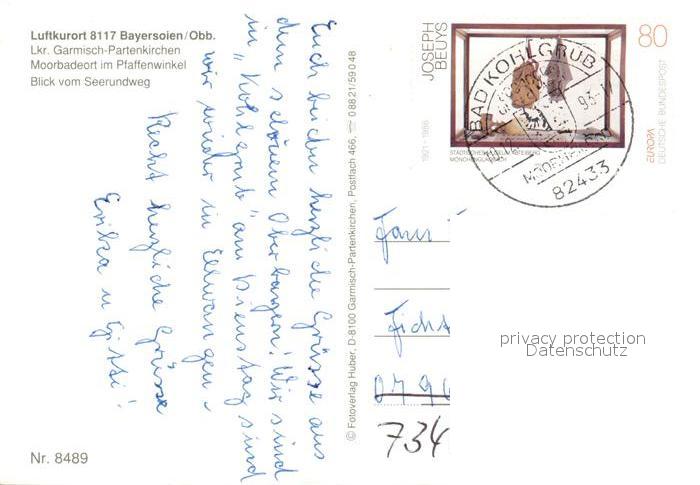 Luftkurort 8117 Bayersoien/Obb.
Lkr. Garmisch-Partenkirchen
Moorbadeort im Pfaffenwinkel
Blick vom Seerundweg
Euch beiden herzliche Grüsse aus
dem schönen Oberbayern! Wir sind
in "Kohlgrub" am Dienstag sind
wir wieder in Ellwangen -
Recht herzliche Grüsse
Erika u Gitti!
Nr. 8489
© Fotoverlag Huber, D-8100 Garmisch-Partenkirchen, Postfach 466, ☏ 0 88 21/5 90 48
JOSEPH
BEUYS
1921 - 1986
80
EUROPA
DEUTSCHE BUNDESPOST
MÖNCHENGLADBACH
BAD KOHLGRUB
82433
Fami
Ficht
734
privacy protection
Datenschutz